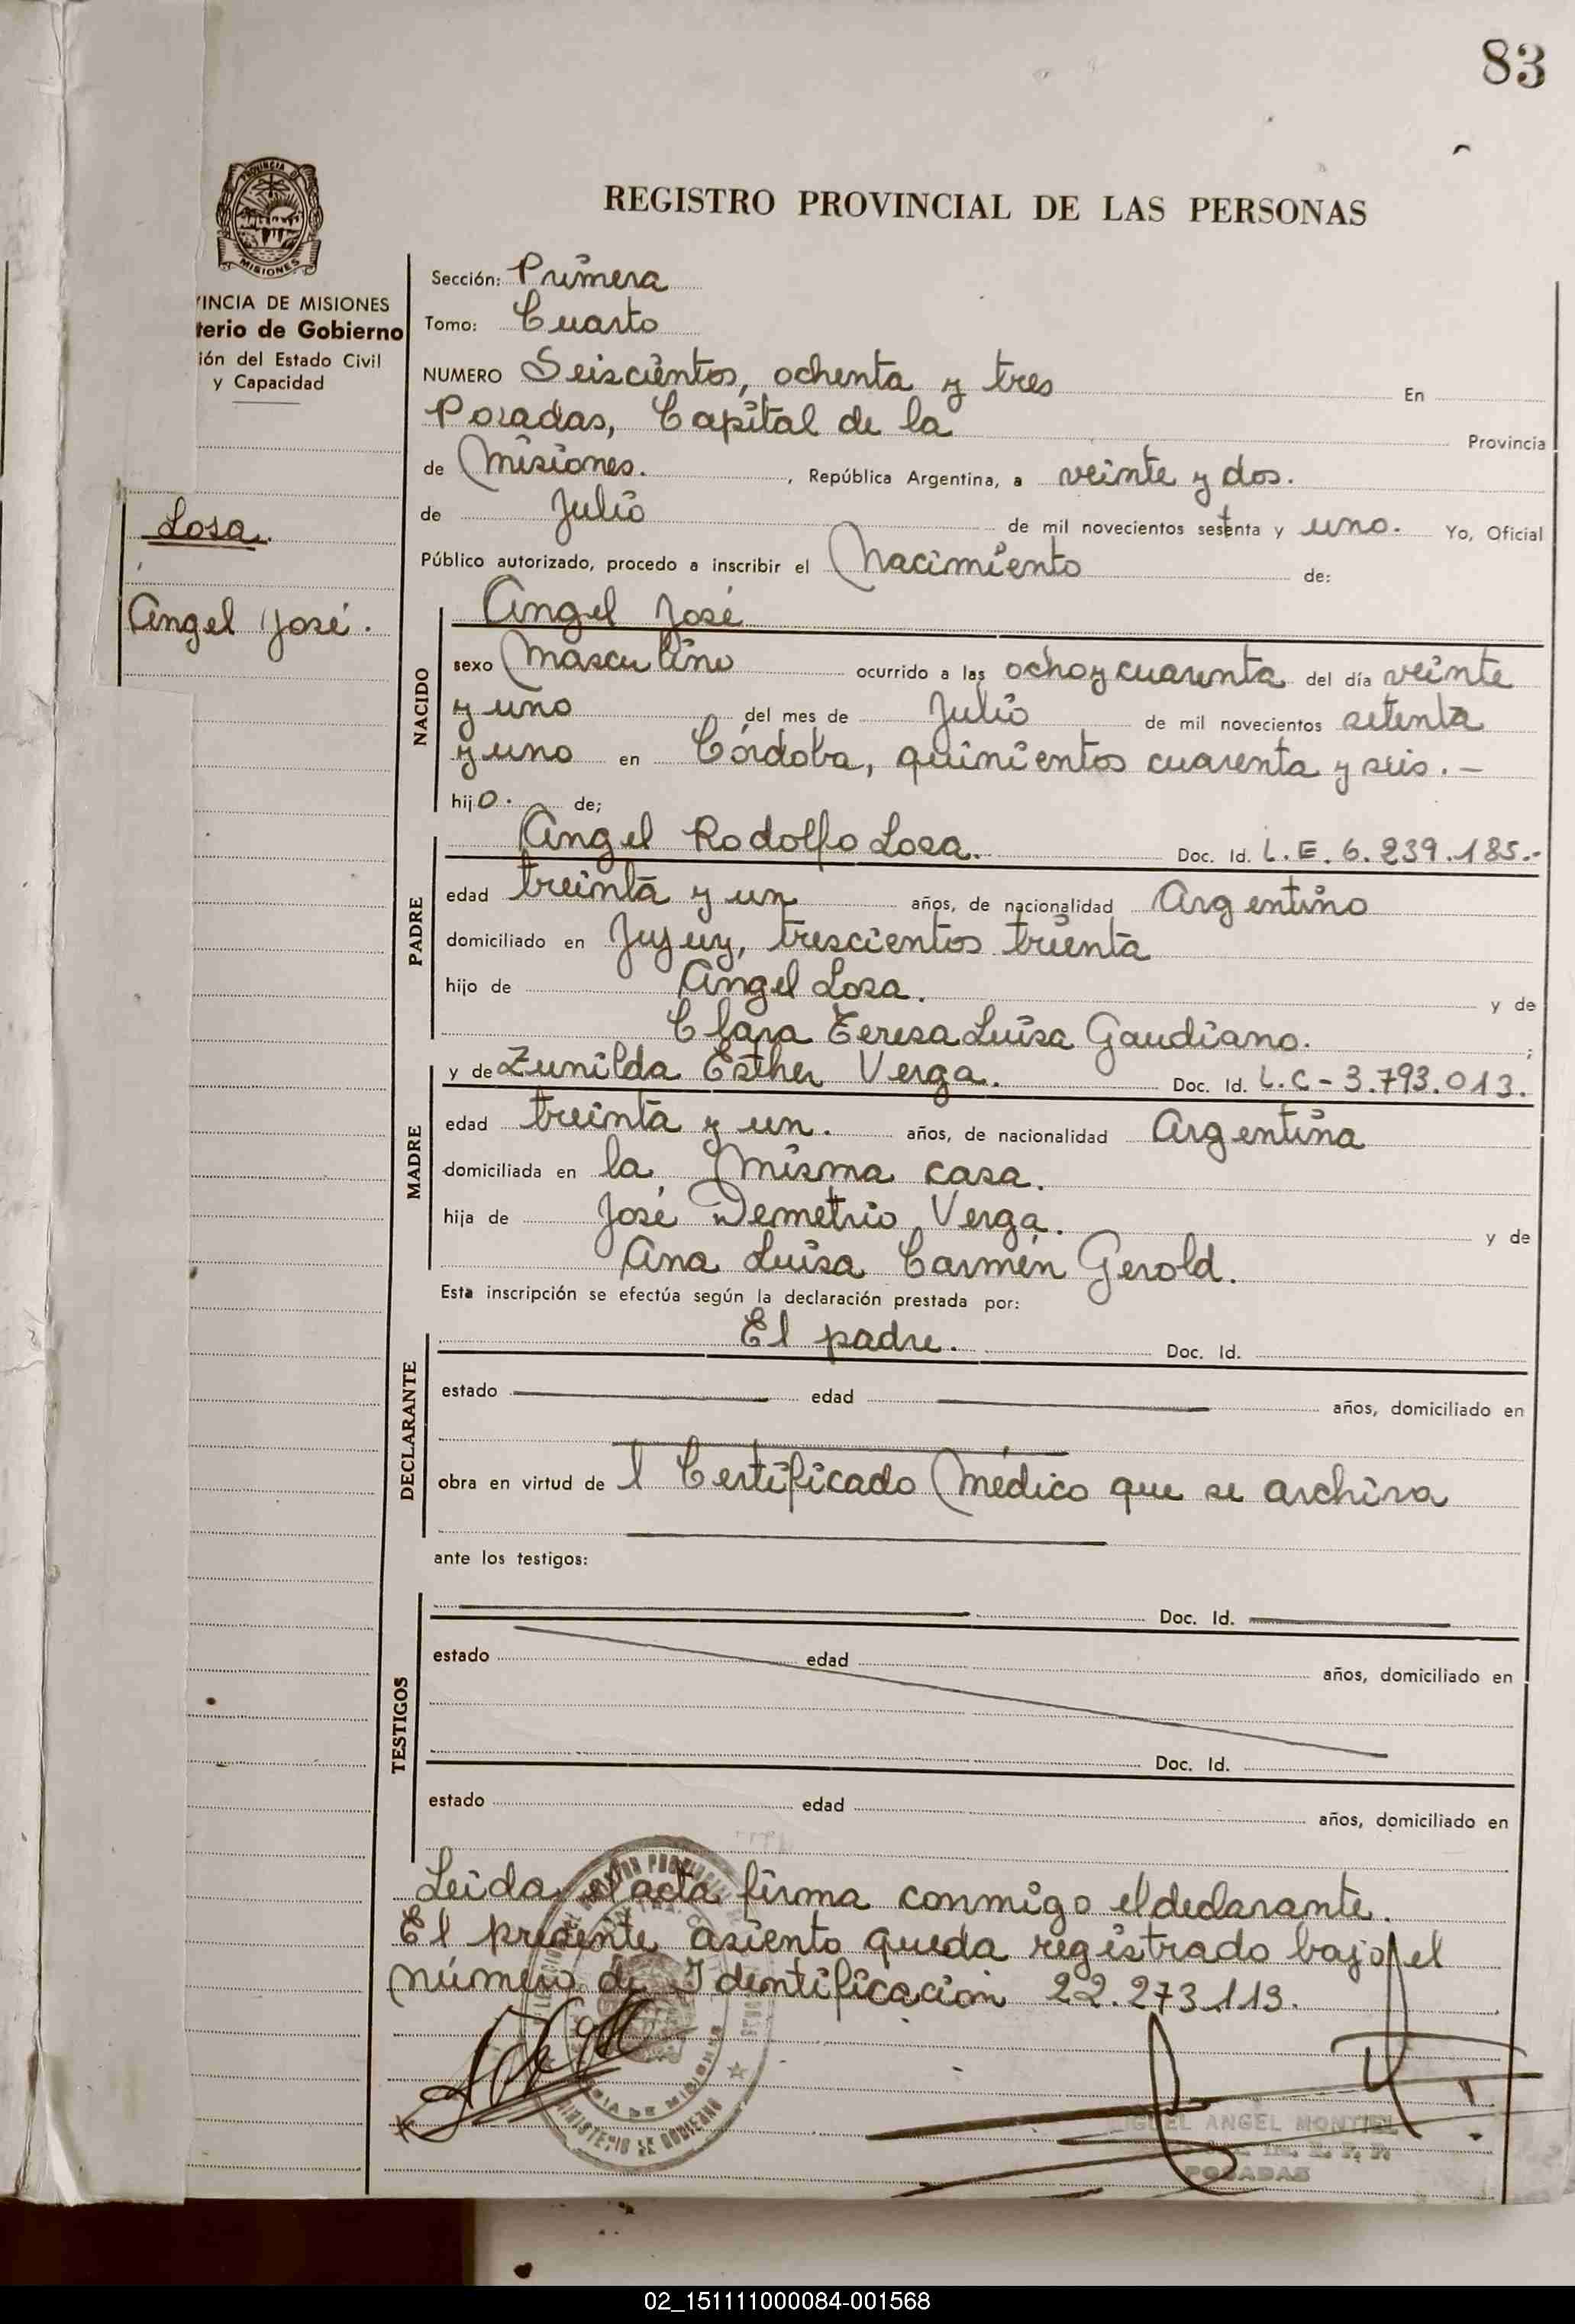 83
REGISTRO PROVINCIAL DE LAS PERSONAS
PROVINCIA DE
MISIONES
VINCIA DE MISIONES
terio de Gobierno
ión del Estado Civil
y Capacidad
Losa.
Angel José.
Sección: Primera
Tomo: Cuarto
NUMERO Seiscientos, ochenta y tres En
Posadas, Capital de la Provincia
de Misiones. , República Argentina, a veinte y dos.
de Julio de mil novecientos sesenta y uno. Yo, Oficial
Público autorizado, procedo a inscribir el Nacimiento de:
NACIDO
Angel José
sexo Masculino ocurrido a las ocho y cuarenta del día veinte
y uno del mes de Julio de mil novecientos setenta
y uno en Córdoba, quinientos cuarenta y seis.-
hijo. de;
PADRE
Angel Rodolfo Losa. Doc. Id. L.E. 6.239.185.-
edad treinta y un años, de nacionalidad Argentino
domiciliado en Jujuy, trescientos treinta
hijo de Angel Losa. y de
Clara Teresa Luisa Gaudiano. ;
MADRE
y de Zunilda Esther Verga. Doc. Id. L.C- 3.793.013.
edad treinta y un. años, de nacionalidad Argentina
domiciliada en la misma casa.
hija de José Demetrio Verga. y de
Ana Luisa Carmén Gerold.
Esta inscripción se efectúa según la declaración prestada por:
DECLARANTE
El padre. Doc. Id.
estado edad años, domiciliado en
obra en virtud de l Certificado Médico que se archiva
ante los testigos:
TESTIGOS
Doc. Id.
estado edad años, domiciliado en
Doc. Id.
estado edad años, domiciliado en
Leida el acta firma conmigo el declarante.
El presente asiento queda registrado bajo el
número de Identificación 22.273.113.
MINISTERIO DE GOBIERNO
MIGUEL ANGEL MONTIEL
POSADAS
02_151111000084-001568